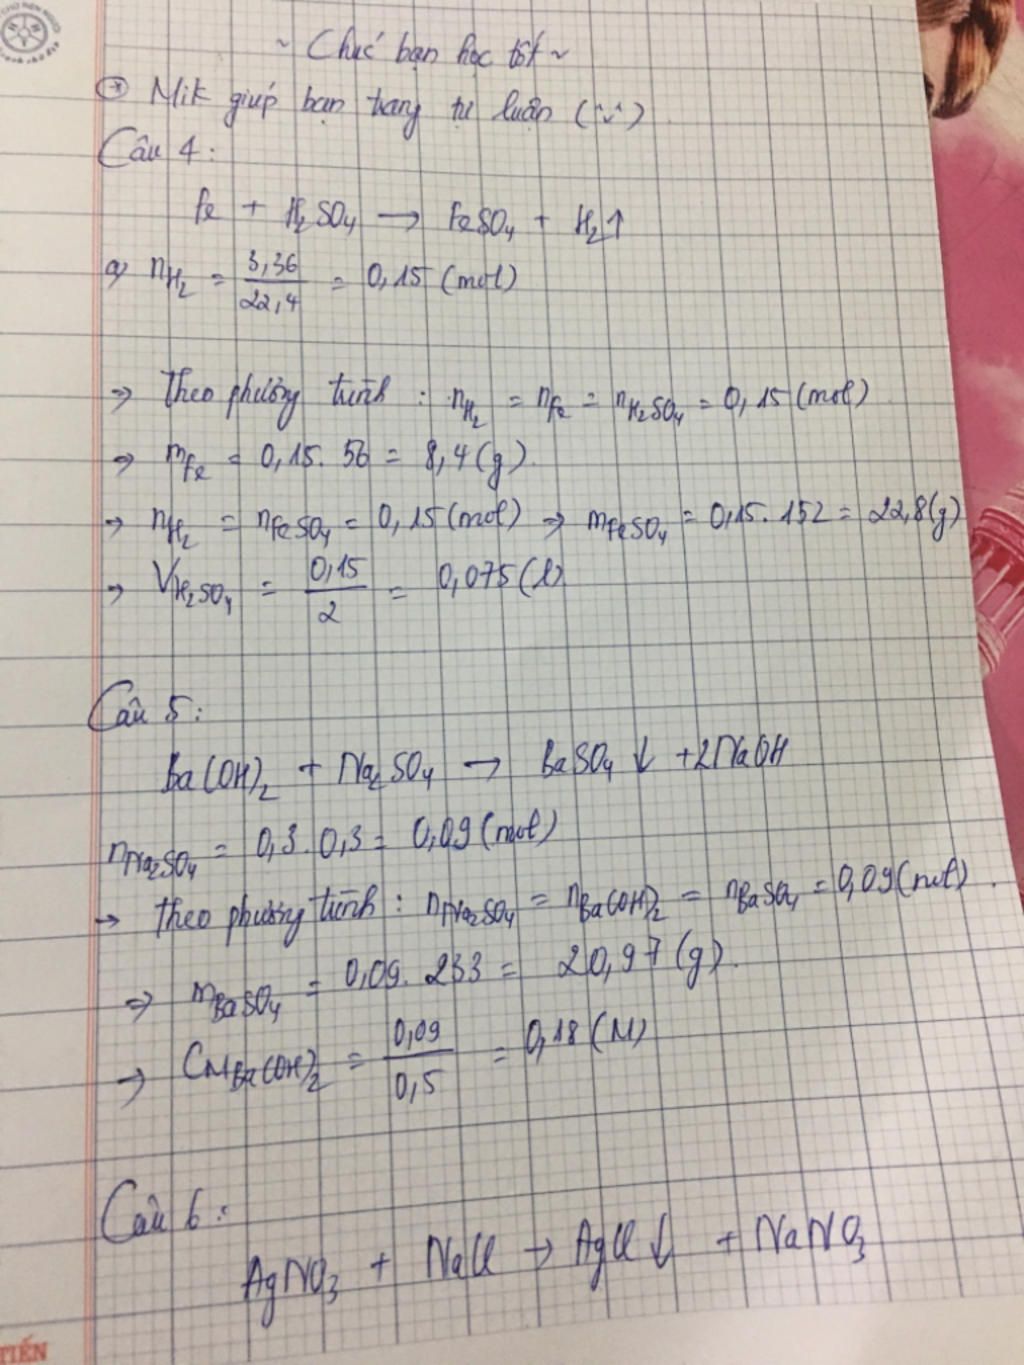 ~ Chúc bạn học tốt ~
→ Mik giúp bạn trang tự luận (∵)
Câu 4:
Fe + H₂SO₄ → FeSO₄ + H₂↑
a) nH₂ = 3,36/22,4 = 0,15 (mol)
→ Theo phương trình : nH₂ = nFe = nH₂SO₄ = 0,15 (mol)
→ mFe = 0,15. 56 = 8,4 (g).
→ nH₂ = nFeSO₄ = 0,15 (mol) → mFeSO₄ = 0,15. 152 = 22,8 (g)
→ VH₂SO₄ = 0,15/2 = 0,075 (l)
Câu 5:
Ba(OH)₂ + Na₂SO₄ → BaSO₄↓ + 2NaOH
nNa₂SO₄ = 0,3. 0,3 = 0,09 (mol)
→ theo phương trình : nNa₂SO₄ = nBa(OH)₂ = nBaSO₄ = 0,09 (mol).
→ mBaSO₄ = 0,09. 233 = 20,97 (g).
→ CMBa(OH)₂ = 0,09/0,5 = 0,18 (M)
Câu 6:
AgNO₃ + NaCl → AgCl↓ + NaNO₃
TIẾN